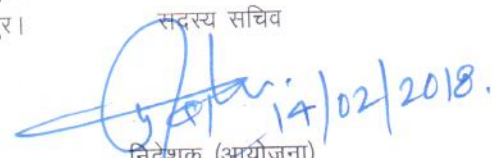 र।
सदस्य सचिव
14/02/2018.
निदेशक (आयोजना)